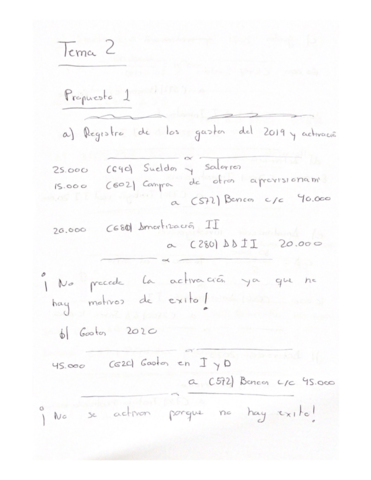 Tema 2
Propuesto 1
a) Registro de los gastos del 2019 y activació
25.000 (640) Sueldos y salarios
15.000 (602) Compra de otros aprovisionam
a (572) Bancos c/c 40.000
20.000 (680) Amortización II
a (280) AAII 20.000
¡No procede la activación ya que no
hay motivos de exito!
b) Gastos 2020
45.000 (620) Gastos en I y D
a (572) Bancos c/c 45.000
¡No se activan porque no hay exito!